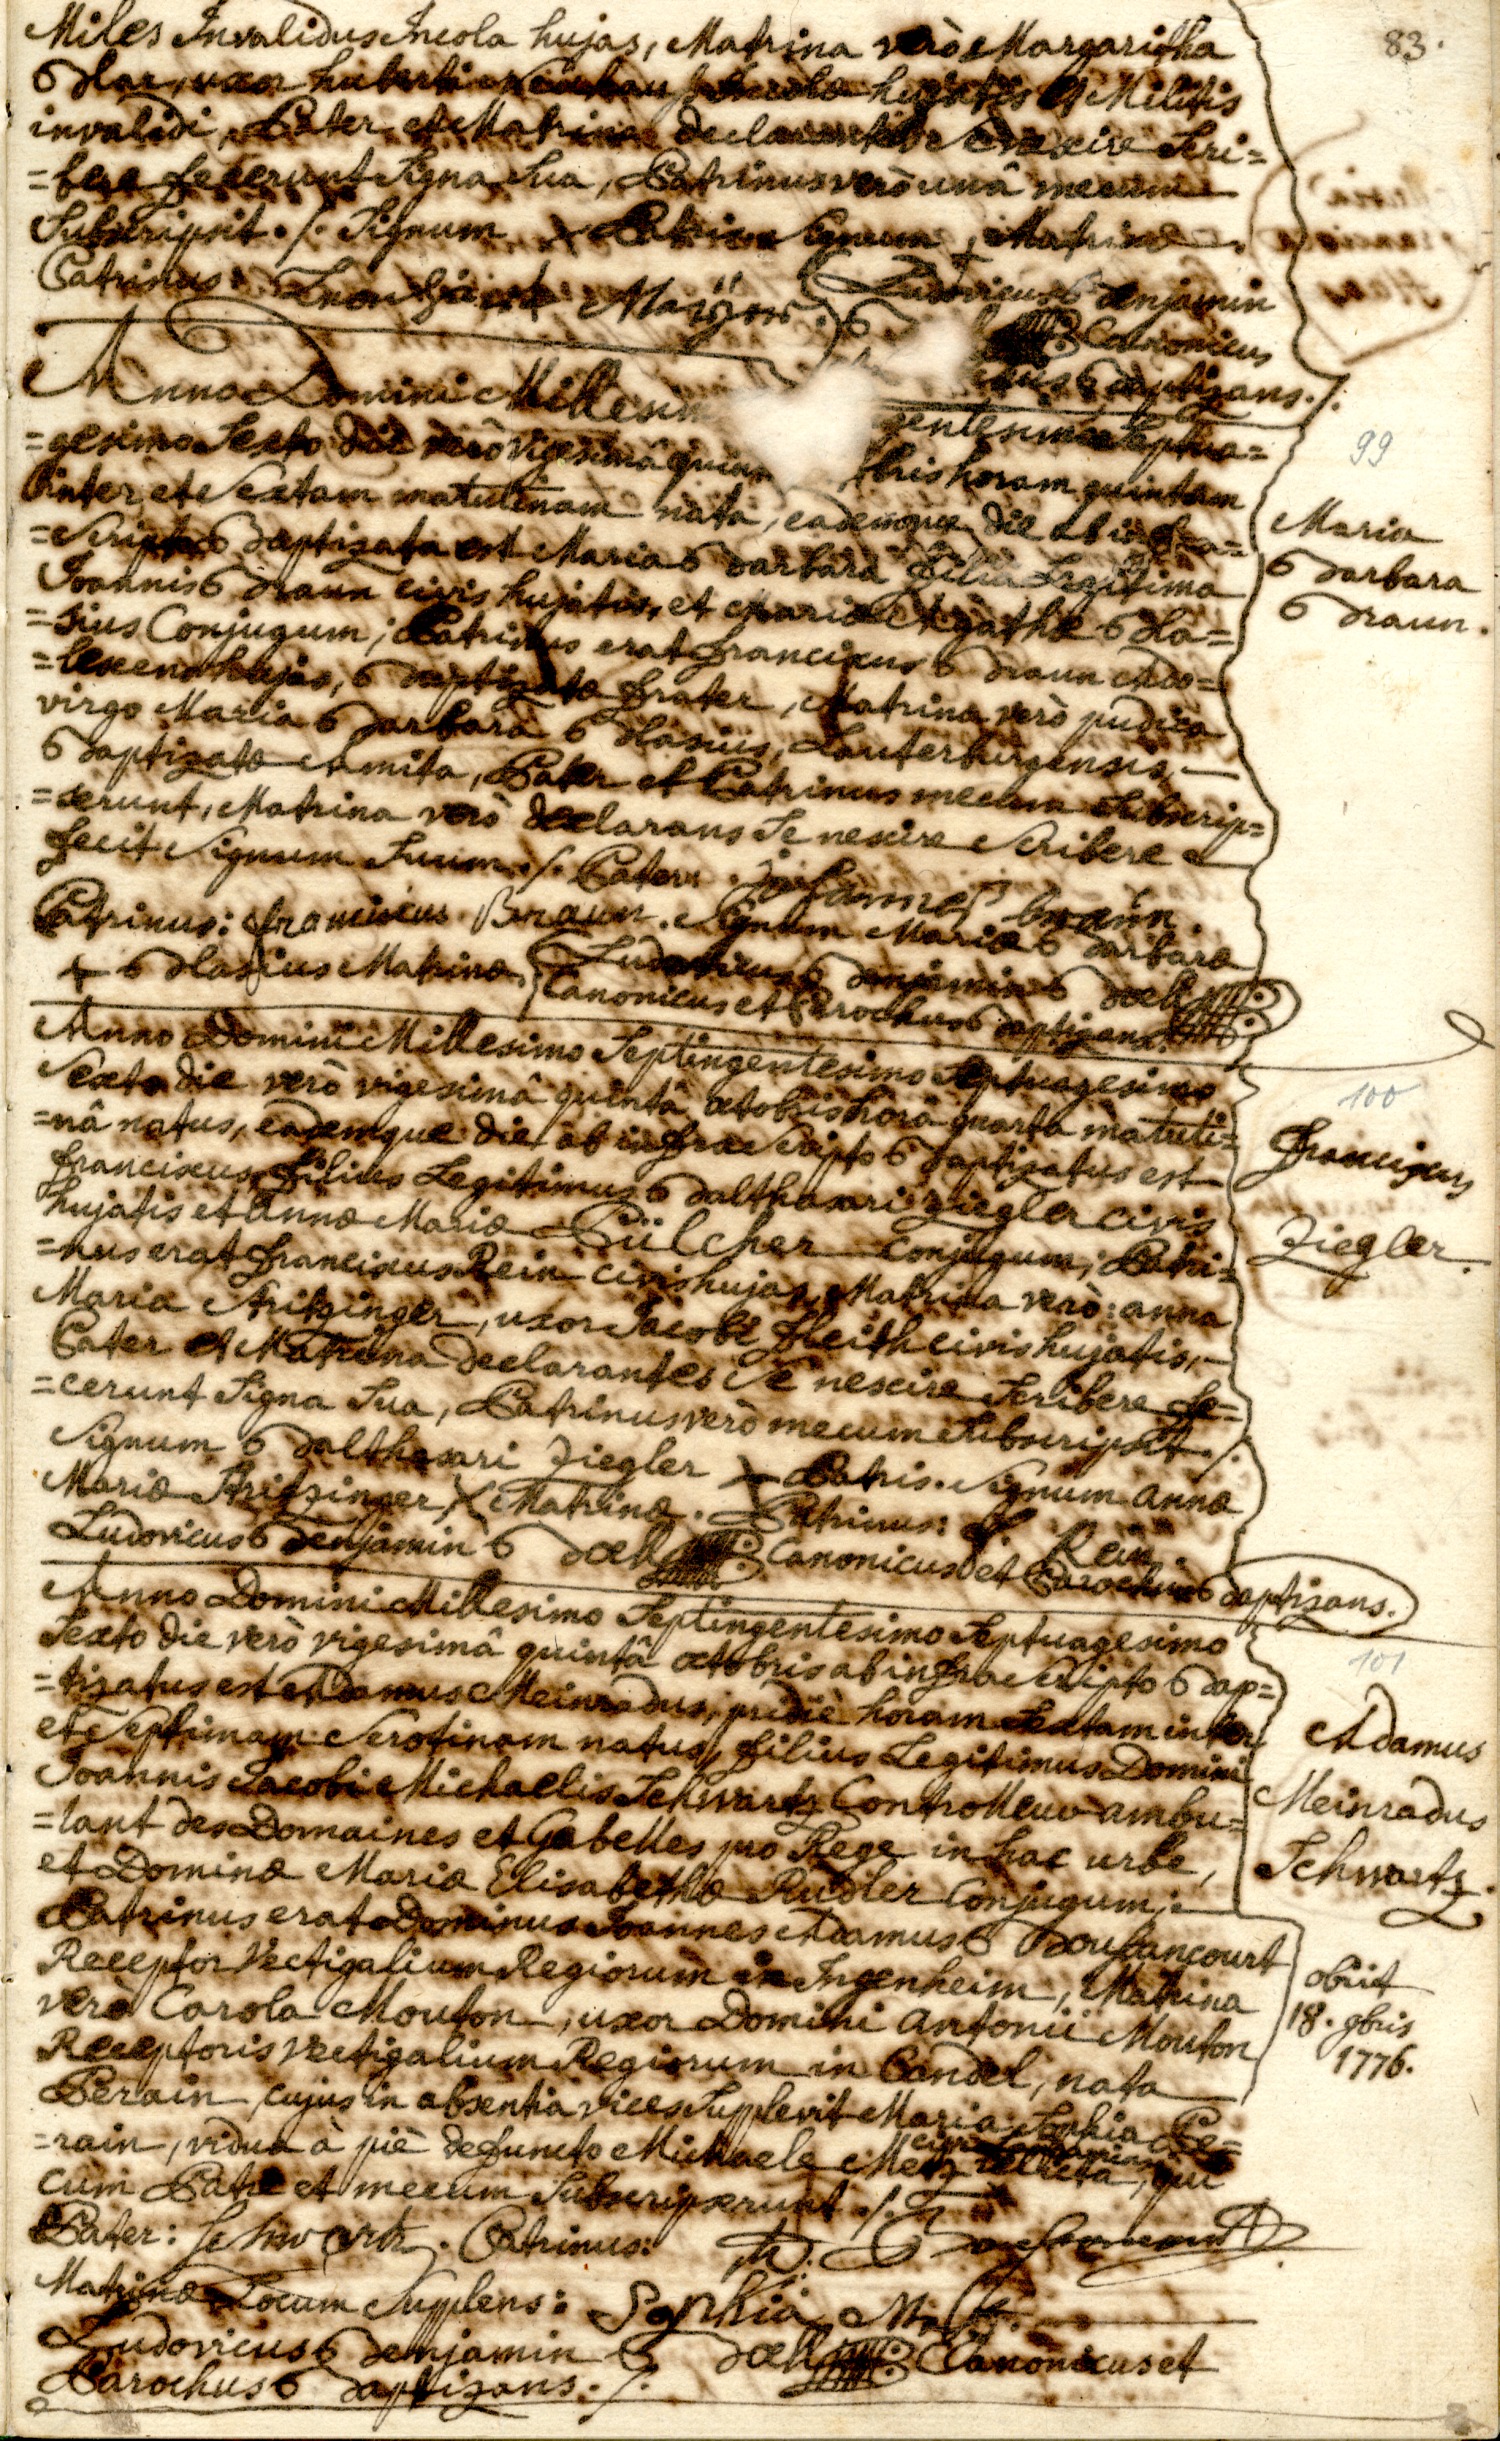 83.
Miles Invalidus Incola hujas, Matrina verò Margaritha
invalidi, Pater et Matrina declarantes Se nescire Scri=
=bere fecerunt Signa Sua, Patrinus verò unâ mecum
Subscripsit ./. Signum X Patris Signum + Matrinæ.
Patrinus:
Ludovicus Benjamin
Canonicus
Baptizans ./.
Anno Domini Millesim gentesimo Septua=
=gesimo Sexto die verò vigesimâ quin bris horam quintam
inter et Sextam matutinam nata, eademque die ab infra=
=Scripto Baptizata est Maria Barbara filia Legitima
Joannis Braun civis hujatis, et Mariæ Agathæ Bla=
=sius Conjugum; Patrinus erat franciscus Braun Ado=
=lescens hujas, Baptizatæ frater, Matrina verò pudica
virgo Maria Barbara Blasius, Lauterburgensis,
Baptizatæ Amita, Pater et Patrinus mecum Subscrip=
=serunt, Matrina verò declarans Se nescire Scribere
fecit Signum Suum ./. Pater: johannes braün.
Patrinus: franciscus Braun. Signum Mariæ Barbaræ
+ Blasius Matrinæ. Ludovicus Benjamin Boell
Canonicus et Parochus Baptizans.
99
Maria
Barbara
Braun.
Anno Domini Millesimo Septingentesimo Septuagesimo
Sexto die verò vigesimâ quintâ octobris horâ quarta matuti=
=nâ natus, eademque die ab infra Scripto Baptizatus est
franciscus, filius Legitimus Balthasari Ziegler civis
hujatis et annæ Mariæ Pülcher Conjugum; Patri=
=nus erat franciscus Rein civis hujas, Matrina verò: anna
Maria Stritzinger, uxor Jacobi fleith civis hujatis,
Pater et Matrina declarantes Se nescire Scribere fe=
=cerunt Signa Sua, Patrinus verò mecum Subscripsit ./.
Signum Balthasari Ziegler X Patris. Signum annæ
Mariæ Stritzinger X Matrinæ. Patrinus: f Rein.
Ludovicus Benjamin Boell Canonicus et Parochus Baptizans.
100
franciscus
Ziegler.
Anno Domini Millesimo Septingentesimo Septuagesimo
Sexto die verò vigesimâ quintâ octobris ab infra Scripto Bap=
=tizatus est Adamus Meinradus, pridiè horam Sextam inter
et Septimam Serotinam natus, filius Legitimus Domini
Joannis Jacobi Michaelis Schwartz Controlleur ambu=
=lant des Domaines et Gabelles pro Rege in hac urbe,
et Dominæ Mariæ Elisabethæ Rudler Conjugum;
Patrinus erat Dominus Joannes Adamus Boufancourt
Receptor Vectigalium Regiorum in Ingenheim, Matrina
verò Carola Mouton, uxor Domini Antonii Mouton
Receptoris Vectigalium Regiorum in Candel, nata
Perain, cujus in absentia vices Supplevit Maria Sophia Pe=
=rain, vidua à piè defuncto Michaele Metz relicta, qui
cum Patre et mecum Subscripserunt ./.
Pater: Schwartz. Patrinus:
Matrinæ Locum Supplens: Sophia
Ludovicus Benjamin Boell Canonicus et
Parochus Baptizans ./.
101
Adamus
Meinradus
Schwartz.
obiit
18. 9bris
1776.